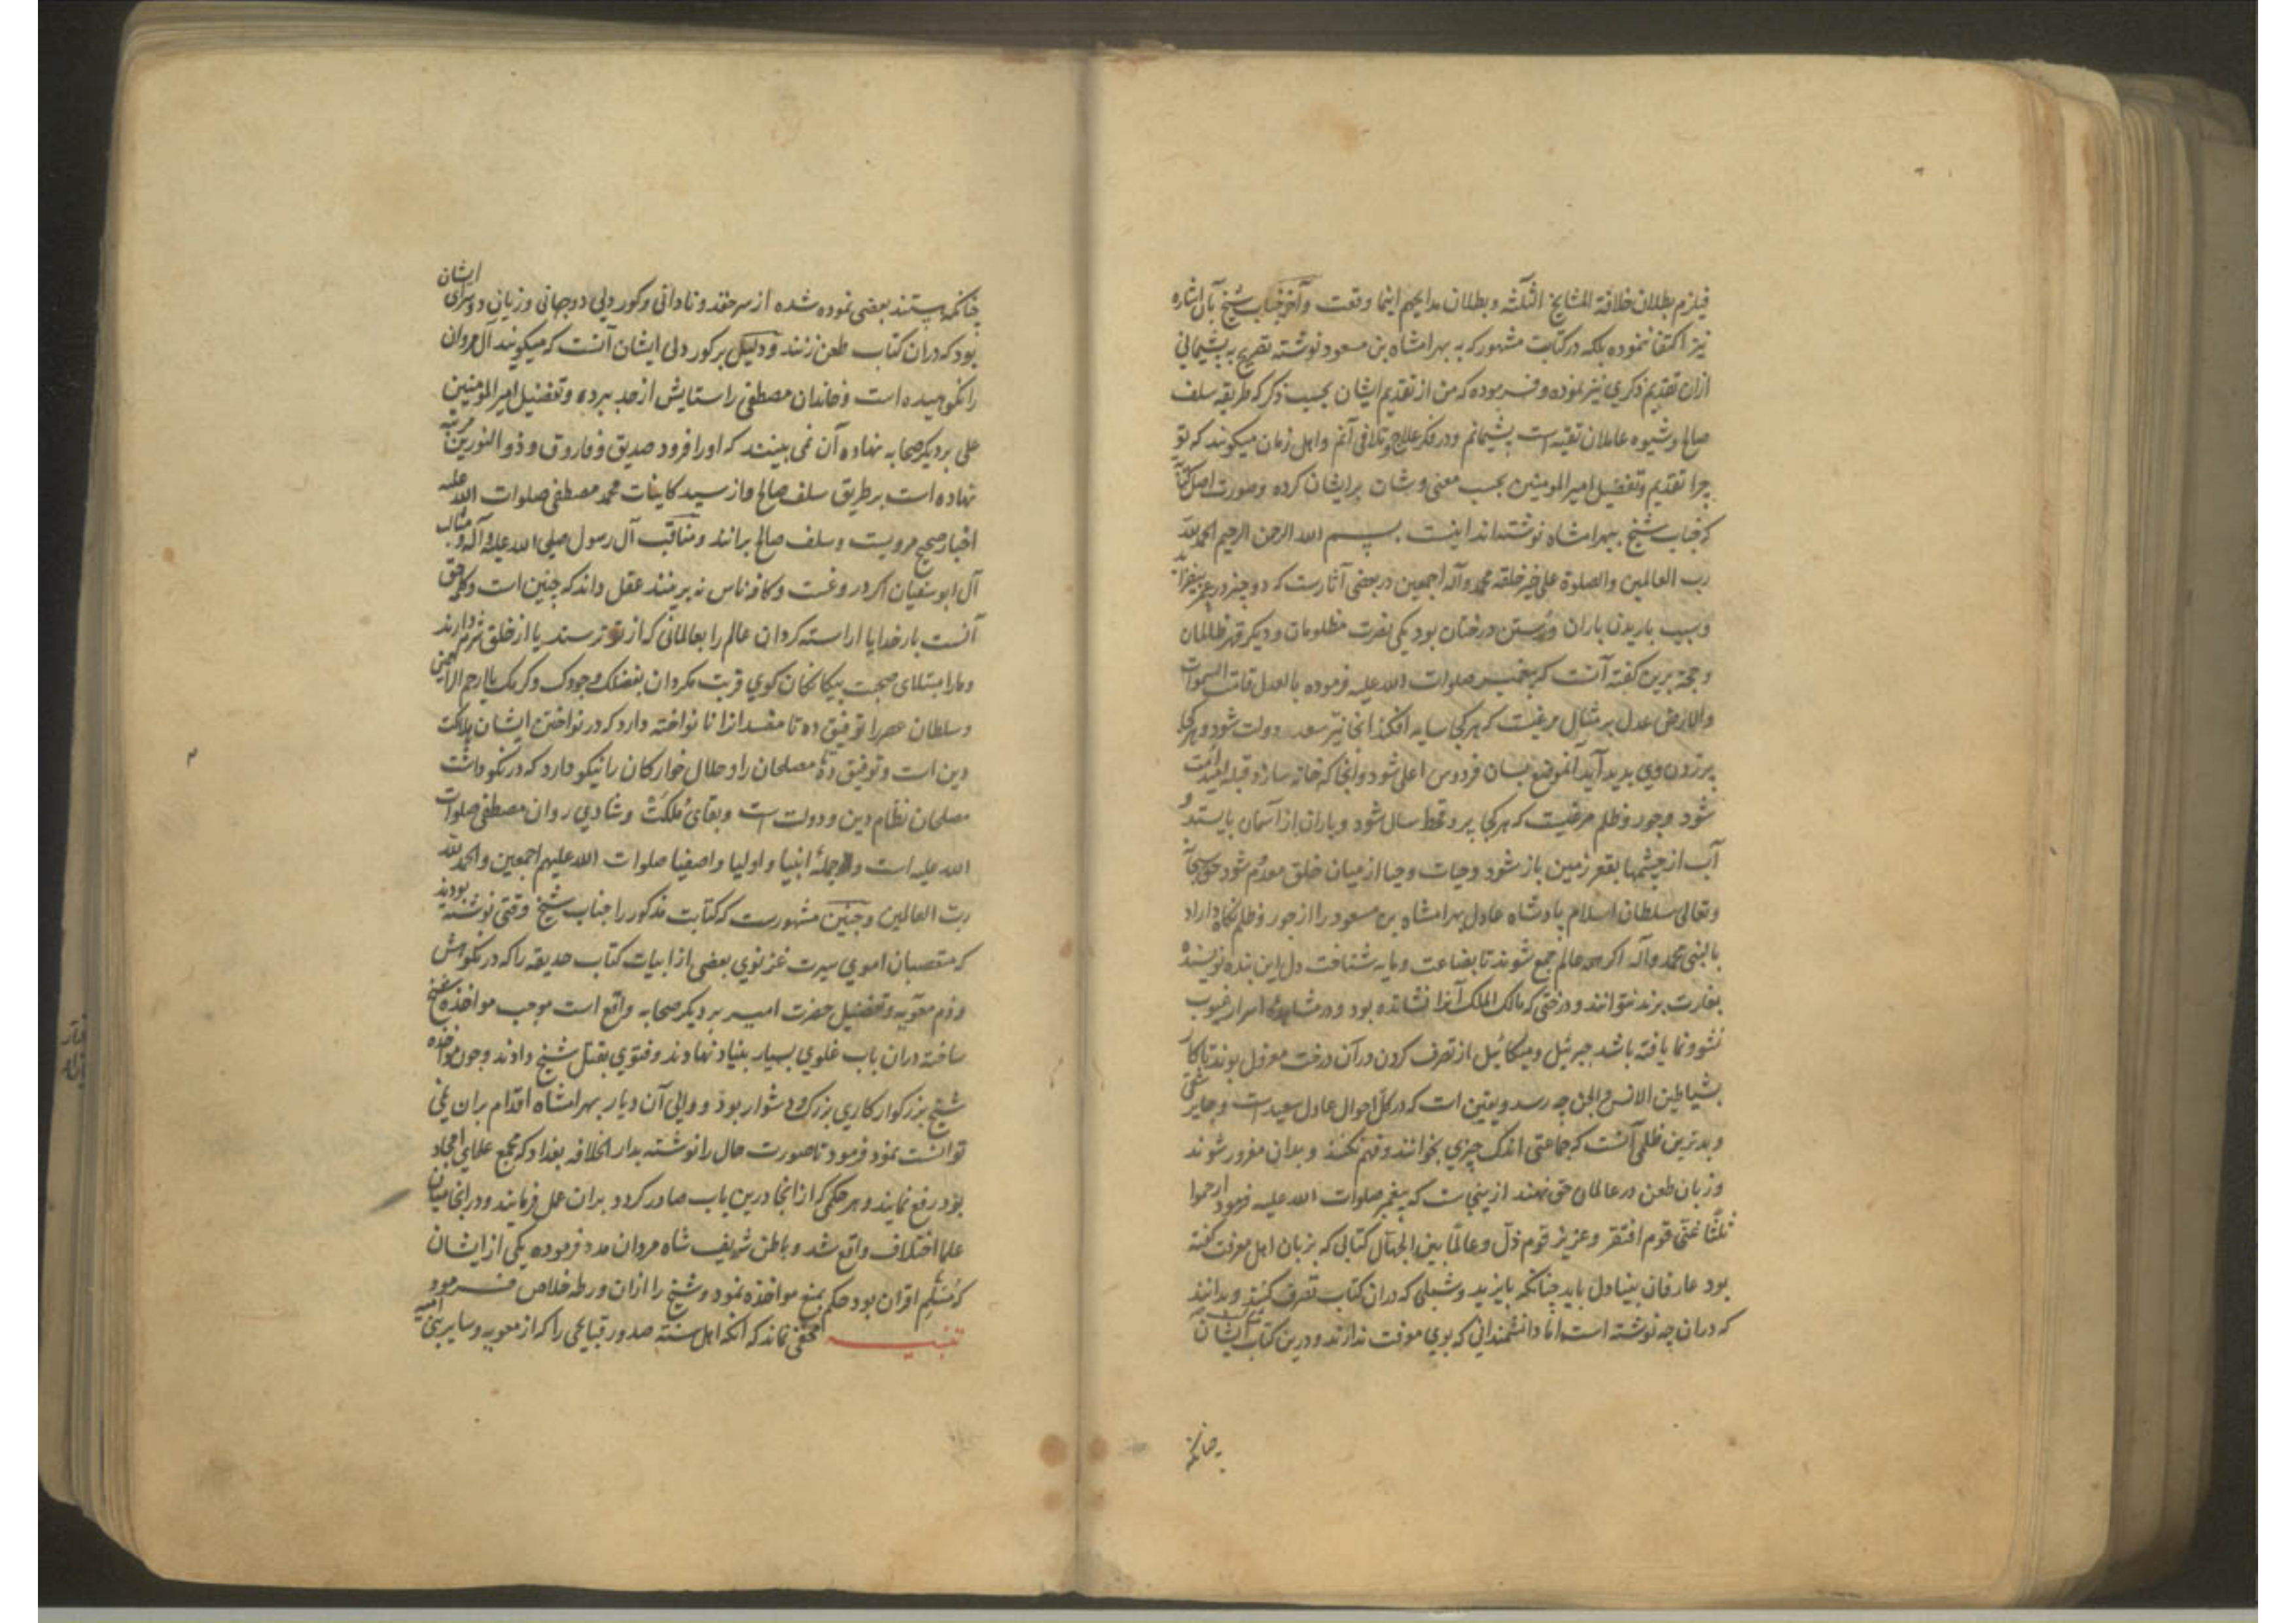 فیلزم بطلان خلافة المشایخ الثلثه و بطلان مدایحهم اینما وقعت و آخر جناب شیخ بآن اشاره
نیز اکتفا ننموده بلکه در کتابت مشهور که به بهرامشاه بن مسعود نوشته تصریح به پشیمانی
ازان تقدیم ذکری نیز نموده و فرموده که من از تقدیم ایشان بحسب ذکر که طریقه سلف
صالح و شیوه عاملان تقیه است پشیمانم و در فکر علاج و تلافی آنم و اهل زمان میکویند که تو
چرا تقدیم و تفضیل امیرالمومنین بحسب معنی و شان برایشان کرده و صورت اصل کتابت
که جناب شیخ ببهرامشاه نوشته‌اند اینست بسم الله الرحمن الرحیم الحمد لله
رب العالمین والصلوة علی خیر خلقه محمد وآله اجمعین در بعضی آثارست که دو چیز در عمر بیفزاید
و سبب باریدن باران و رستن درختان بود یکی نصرت مظلومان و دیکر قهر ظالمان
و حجة برین کفته آنست که پیغمبر صلوات الله علیه فرموده بالعدل قامت السموات
والارض عدل بر مثال مرغیست که هر کجا سایه افکند انجا نیز سعد دولت شود و هر کجا
پر زدن وی پدید آید آنموضع بسان فردوس اعلی شود و انجا که خانه سازد قبله امید امت
شود و جور و ظلم مرغیست که هر کجا پرد قحط سال شود و باران از آسمان بایستد و
آب از چشمها بقعر زمین باز شود و حیات و حیا از میان خلق معدوم شود حق سبحانه
و تعالی سلطان اسلام پادشاه عادل بهرامشاه بن مسعود را از جور و ظلم نکاه داراد
بالنبی محمد وآله اکر همه عالم جمع شوند تا بضاعت و مایه شناخت دل این بنده نویسنده
بغارت برند نتوانند و درختی که مالک الملک آنرا نشانده بود و در مشاهده اسرار غیوب
نشو و نما یافته باشد جبرئیل و میکائیل از تصرف کردن در آن درخت معزول بوند تا کار
بشیاطین الانس والجن چه رسد و یقین است که در کل احوال عادل سعیدست و جایر شقی
و بدترین ظلمی آنست که جماعتی اندک چیزی بخوانند و فهم نکنند و بدان مغرور شوند
و زبان طعن در عالمان حق نهند ازینجاست که پیغمبر صلوات الله علیه فرمود ارحموا
ثلثا غنی قوم افتقر و عزیز قوم ذل و عالما بین الجهال کتابی که بزبان اهل معرفت کفته
بود عارفان بینا دل باید چنانکه بایزید و شبلی که دران کتاب تصرف کنند و بدانند
که دران چه نوشته است اما دانشمندانی که بوی معرفت ندارند و درین کتاب ایشان
چنانکه
چنانکه هستند بعضی نموده شده از سر حقد و نادانی و کور دلی دو جهانی و زیان دو سرای ایشان
بود که دران کتاب طعن زنند و دلیل بر کور دلی ایشان آنست که میکویند آل مروان
را نکوهیده است و خاندان مصطفی را ستایش از حد ببرده و تفضیل امیرالمومنین
علی بر دیکر صحابه نهاده آن نمی بینند که اورا فرود صدیق و فاروق و ذوالنورین مرتبه
نهاده است بر طریق سلف صالح و از سید کاینات محمد مصطفی صلوات الله علیه
اخبار صحیح مرویست و سلف صالح برانند و مناقب آل رسول صلی الله علیه وآله و مثالب
آل ابوسفیان اکر دروغست و کافه ناس نه برینند عقل داند که چنین است و کلمه حق
آنست بار خدایا اراسته کردان عالم را بعالمانی که از تو ترسند یا از خلق شرم دارند
و مارا مبتلای صحبت بیکانکان کوی قربت مکردان بفضلک و جودک و کرمک یا ارحم الراحمین
و سلطان عصر را توفیق ده تا مفسدانرا نا نواخته دارد که در نواختن ایشان هلاکت
دین است و توفیق ده تا مصلحان را و حلال خوارکان را نیکو دارد که در نکو داشت
مصلحان نظام دین و دولت است و بقای ملکت و شادی روان مصطفی صلوات
الله علیه است و از جمله انبیا و اولیا و اصفیا صلوات الله علیهم اجمعین والحمد لله
رب العالمین و چنین مشهورست که کتابت مذکور را جناب شیخ وقتی نوشته بودند
که متعصبان اموی سیرت غزنوی بعضی از ابیات کتاب حدیقه را که در نکوهش
و ذم معویه و تفضیل حضرت امیر بر دیکر صحابه واقع است موجب مواخذه شیخ
ساخته دران باب غلوی بسیار بنیاد نهادند و فتوی بقتل شیخ دادند و چون مواخذه
شیخ بزرکوار کاری بزرک و دشوار بود و والی آن دیار بهرامشاه اقدام بران نمی
توانست نمود فرمود تا صورت حال را نوشته بدار الخلافه بغداد که مجمع علمای امجاد
بود رفع نمایند و هر حکمی که از انجا درین باب صادر کردد بران عمل فرمایند و در انجا میان
علما اختلاف واقع شد و باطن شریف شاه مردان مدد فرموده یکی از ایشان
که مسلم اقران بود حکم بمنع مواخذه نمود و شیخ را ازان ورطه خلاص فرمود
تنبیه مخفی نماند که آنکه اهل سنة صدور قبایحی را که از معویه و سایر بنی امیه